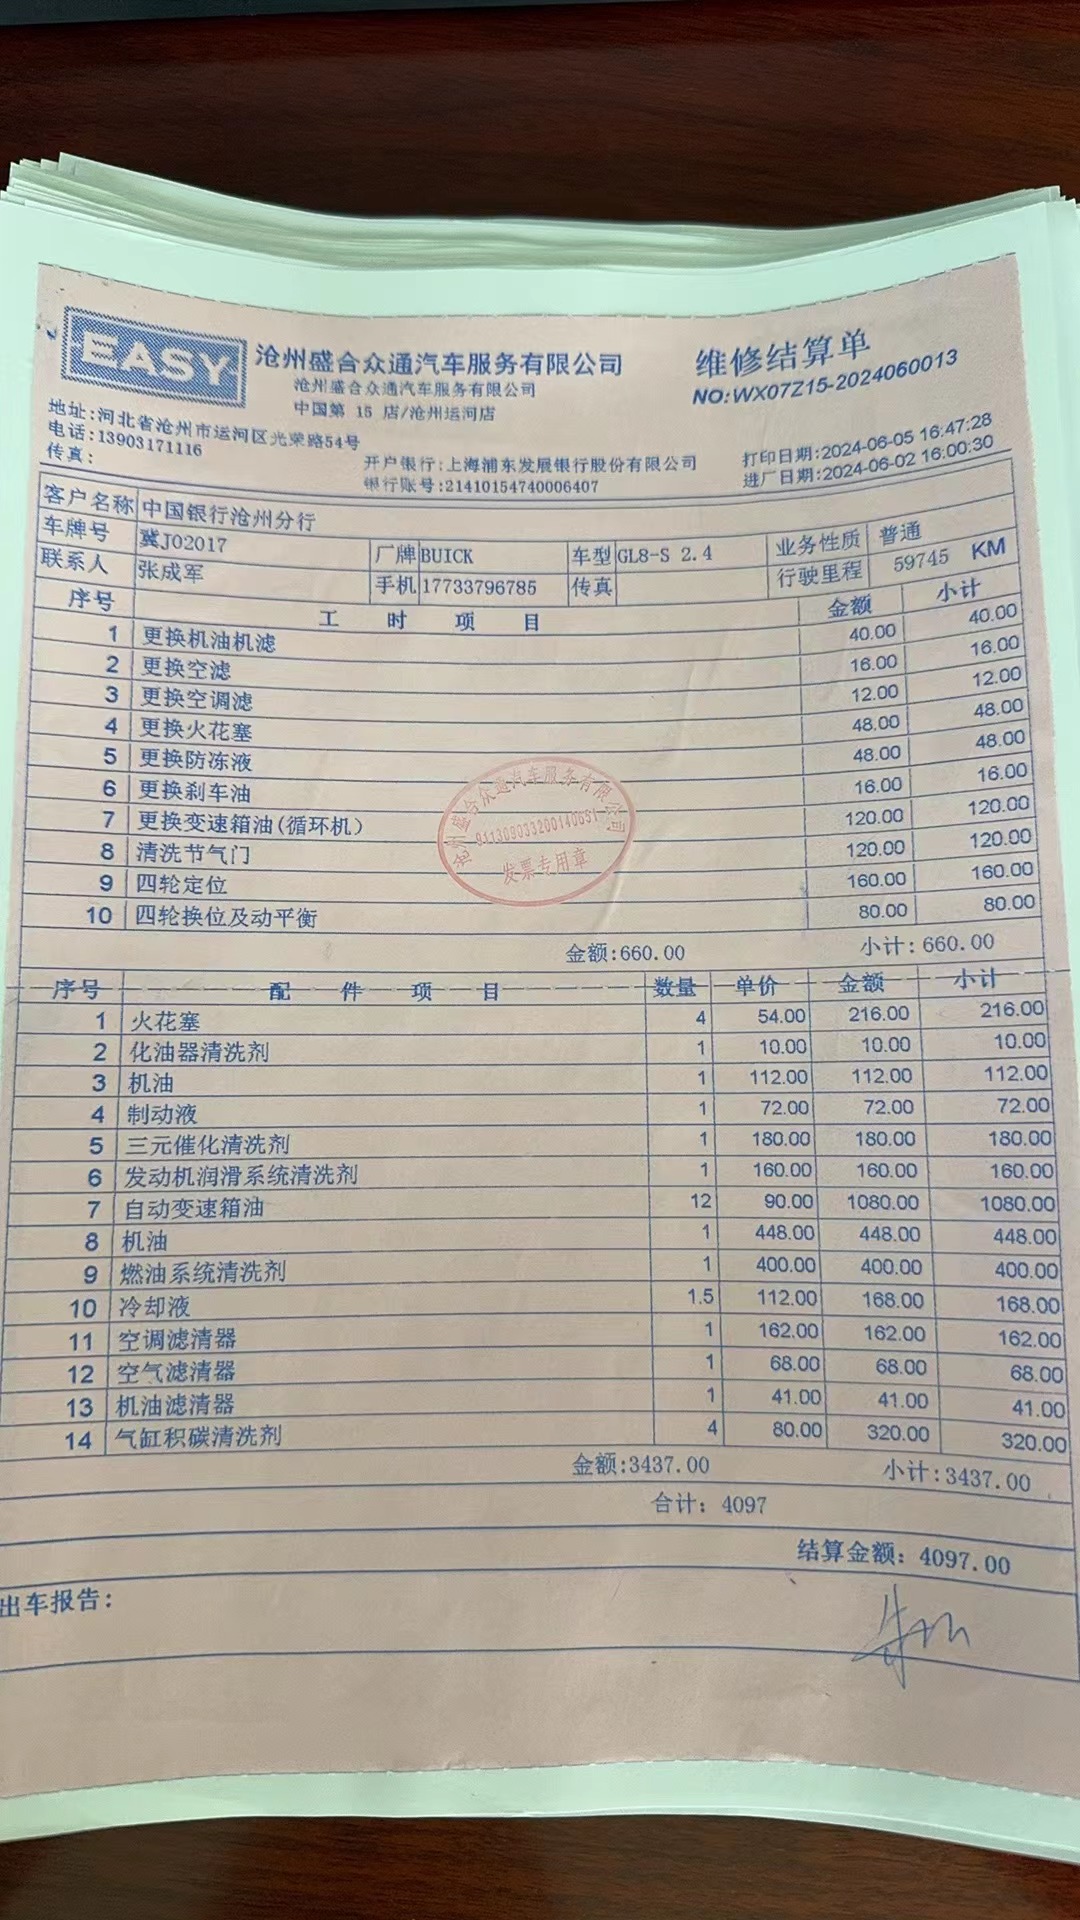 EASY
沧州盛合众通汽车服务有限公司
沧州盛合众通汽车服务有限公司
中国第 15 店/沧州运河店
维修结算单
NO:WX07Z15-2024060013
地址:河北省沧州市运河区光荣路54号
电话:13903171116
传真:
开户银行:上海浦东发展银行股份有限公司
银行账号:21410154740006407
打印日期:2024-06-05 16:47:28
进厂日期:2024-06-02 16:00:30
客户名称 中国银行沧州分行
车牌号 冀J02017 厂牌 BUICK 车型 GL8-S 2.4 业务性质 普通
联系人 张成军 手机 17733796785 传真 行驶里程 59745 KM
序号 工时项目 金额 小计
1 更换机油机滤 40.00 40.00
2 更换空滤 16.00 16.00
3 更换空调滤 12.00 12.00
4 更换火花塞 48.00 48.00
5 更换防冻液 48.00 48.00
6 更换刹车油 16.00 16.00
7 更换变速箱油(循环机) 120.00 120.00
8 清洗节气门 120.00 120.00
9 四轮定位 160.00 160.00
10 四轮换位及动平衡 80.00 80.00
沧州盛合众通汽车服务有限公司
发票专用章
金额:660.00 小计: 660.00
序号 配件项目 数量 单价 金额 小计
1 火花塞 4 54.00 216.00 216.00
2 化油器清洗剂 1 10.00 10.00 10.00
3 机油 1 112.00 112.00 112.00
4 制动液 1 72.00 72.00 72.00
5 三元催化清洗剂 1 180.00 180.00 180.00
6 发动机润滑系统清洗剂 1 160.00 160.00 160.00
7 自动变速箱油 12 90.00 1080.00 1080.00
8 机油 1 448.00 448.00 448.00
9 燃油系统清洗剂 1 400.00 400.00 400.00
10 冷却液 1.5 112.00 168.00 168.00
11 空调滤清器 1 162.00 162.00 162.00
12 空气滤清器 1 68.00 68.00 68.00
13 机油滤清器 1 41.00 41.00 41.00
14 气缸积碳清洗剂 4 80.00 320.00 320.00
金额:3437.00 小计:3437.00
合计: 4097
结算金额: 4097.00
出车报告: